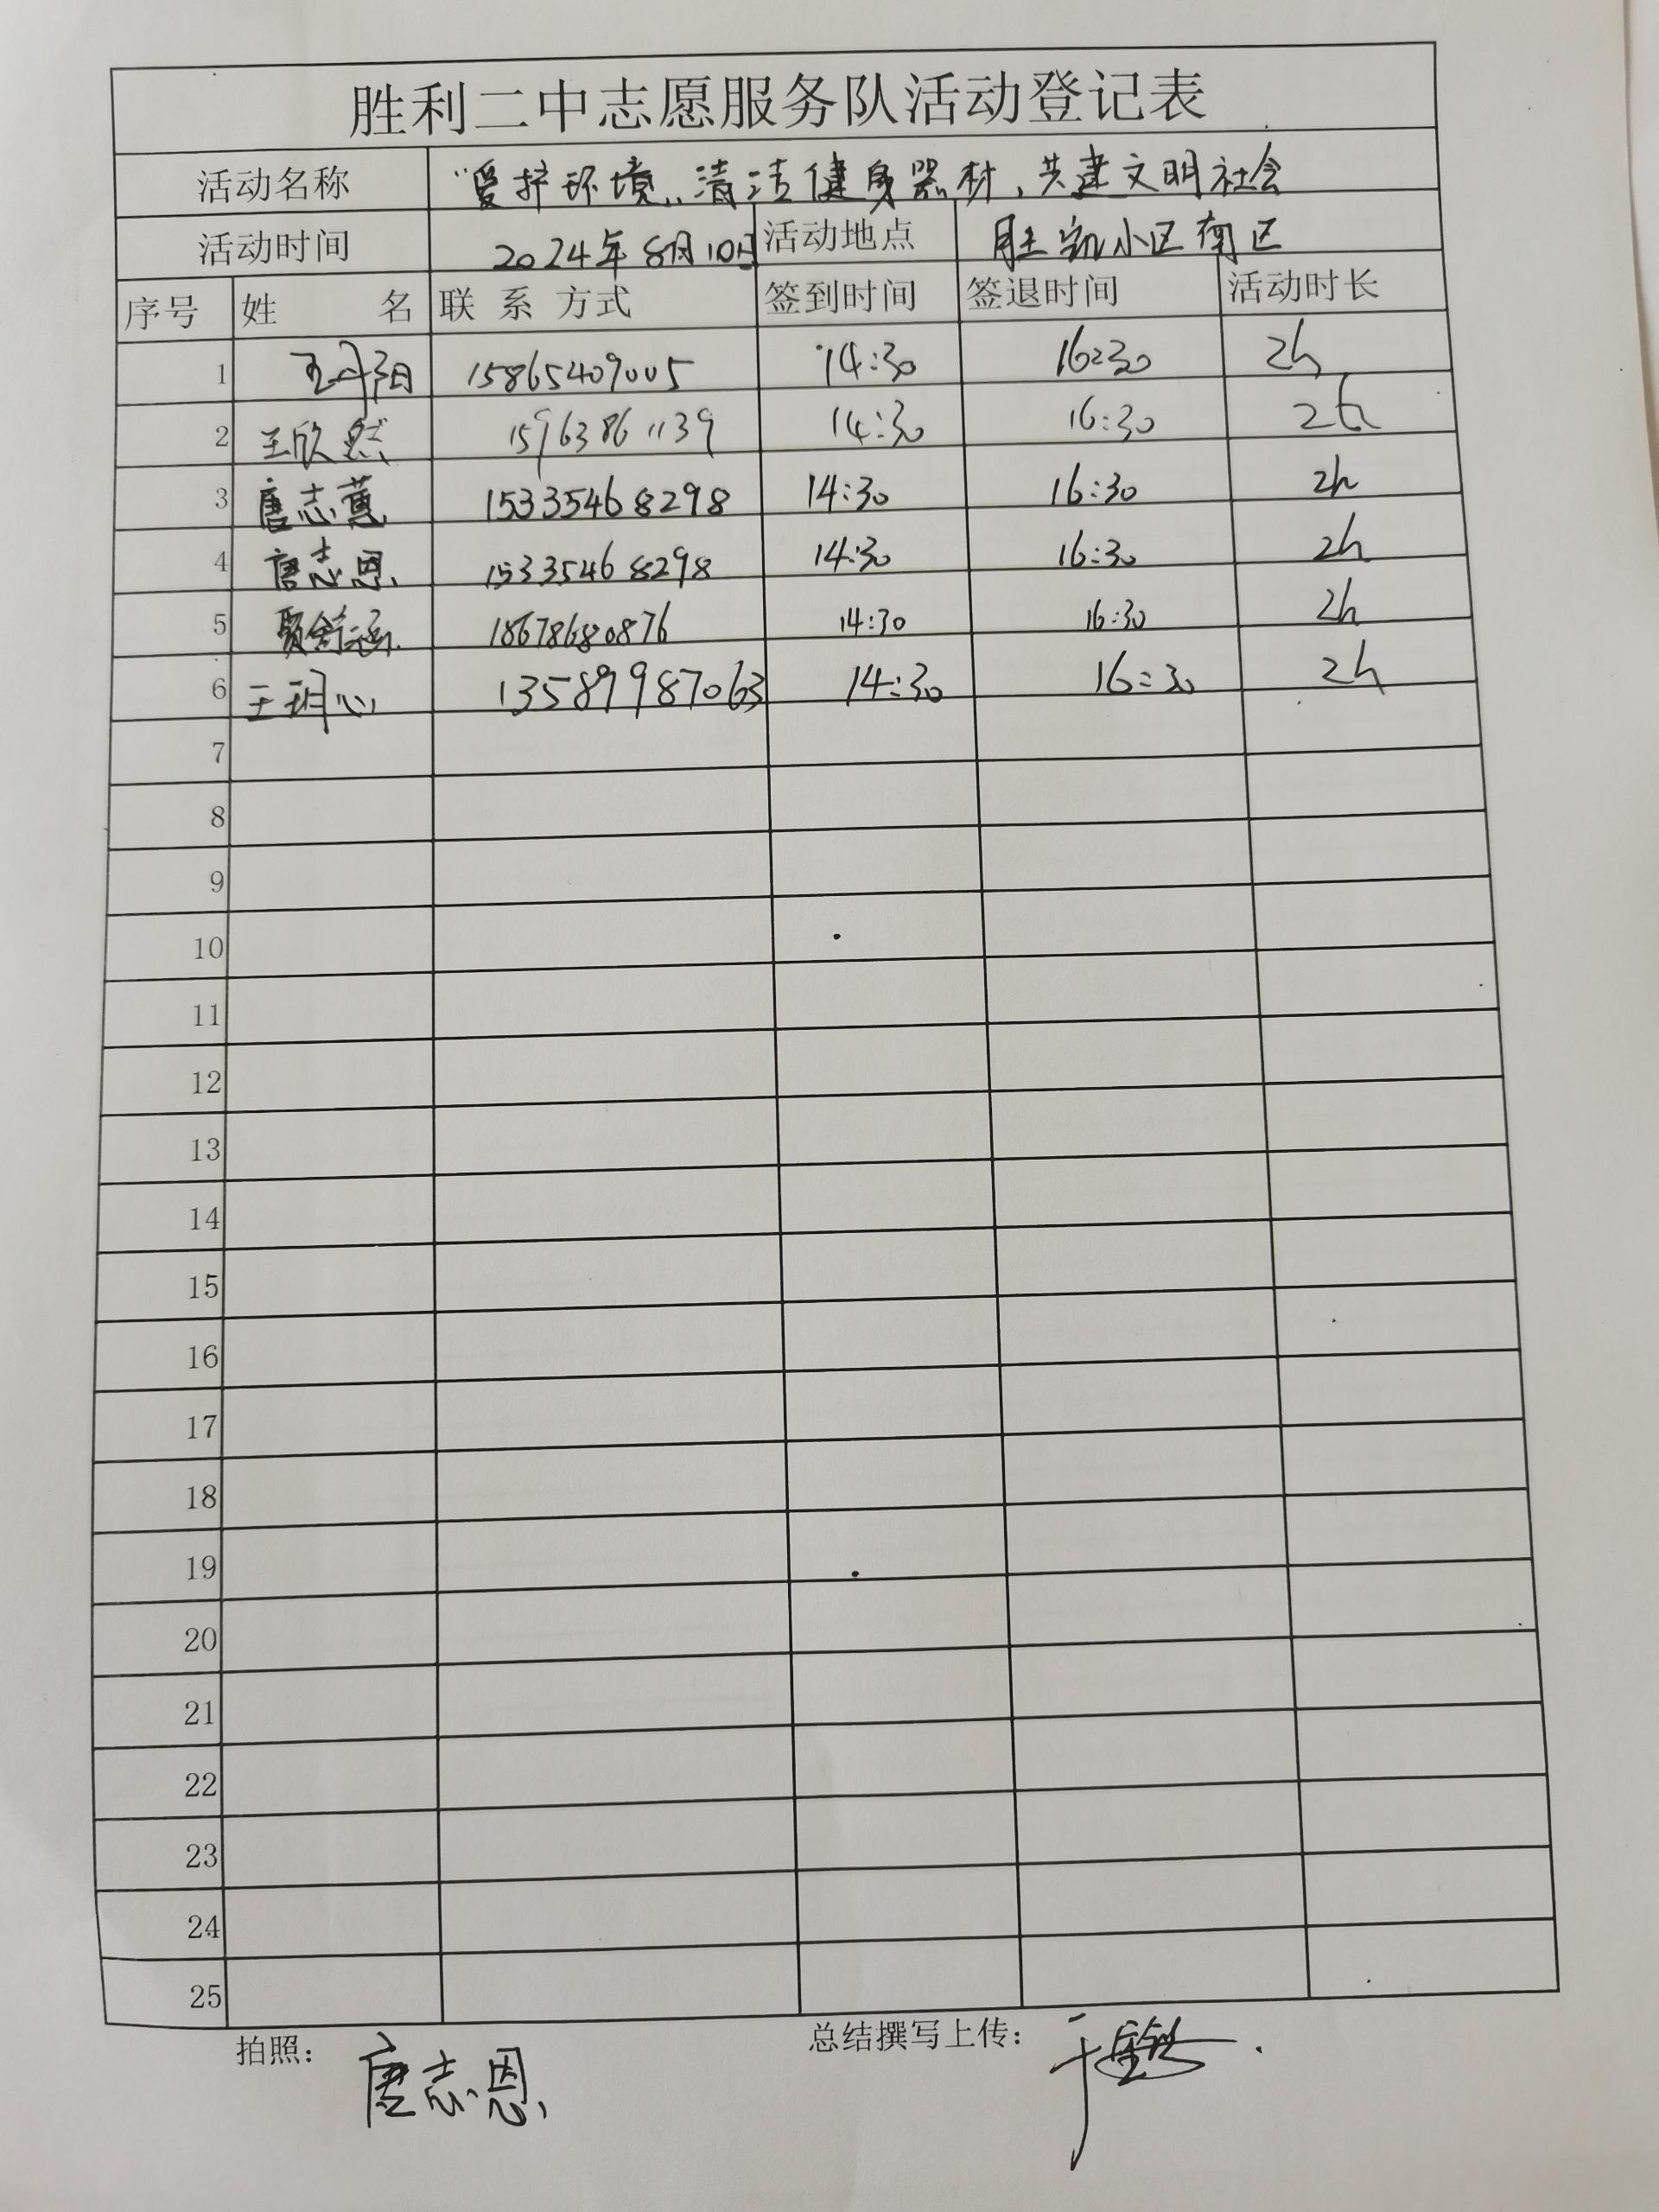 胜利二中志愿服务队活动登记表
活动名称 "爱护环境,,清洁健身器材,共建文明社会
活动时间 2024年8月10日 活动地点 胜凯小区南区
序号 姓 名 联 系 方式 签到时间 签退时间 活动时长
1 15865409005 14:30 16:30 2h
2 王欣然 15963861139 14:30 16:30 2h
3 唐志蕙 15335468298 14:30 16:30 2h
4 唐志恩 15335468298 14:30 16:30 2h
5 18678680876 14:30 16:30 2h
6 王玥心 13589987063 14:30 16:30 2h
7
8
9
10
11
12
13
14
15
16
17
18
19
20
21
22
23
24
25
拍照: 唐志恩 总结撰写上传: